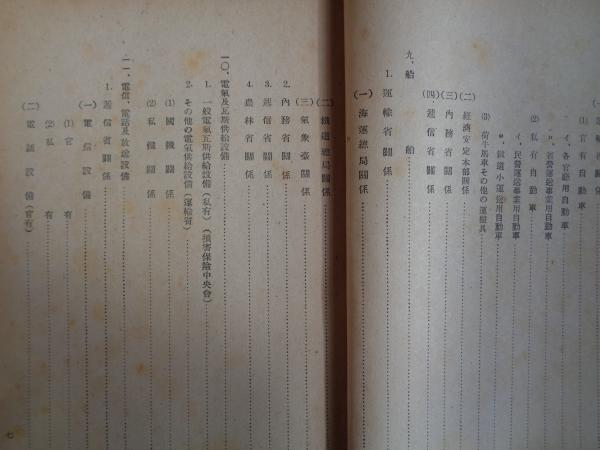 (1) 官有自動車
イ、各官廳用自動車
ロ、省營運送事業用自動車
(2) 私有自動車
イ、民營運送事業用自動車
ロ、鐵道小運送用自動車
(3) 荷牛馬車その他の運搬具
(二) 經濟安定本部關係
(三) 內務省關係
(四) 遞信省關係
九、船舶
1. 運輸省關係
(一) 海運總局關係
(二) 鐵道總局關係
(三) 氣象臺關係
2. 內務省關係
3. 遞信省關係
4. 農林省關係
一〇、電氣及瓦斯供給設備
1. 一般電氣瓦斯供給設備(私有)(損害保險中央會)
2. その他の電氣供給設備(運輸省)
(1) 國鐵關係
(2) 私鐵關係
一一、電信、電話及放送設備
1. 遞信省關係
(一) 電信設備
(1) 官有
(2) 私有
(二) 電話設備(官有)
七